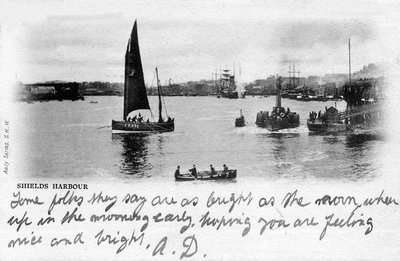 SHIELDS HARBOUR
Some folks they say are as bright as the moon, when
up in the morning early, hoping you are feeling
nice and bright, A. D.